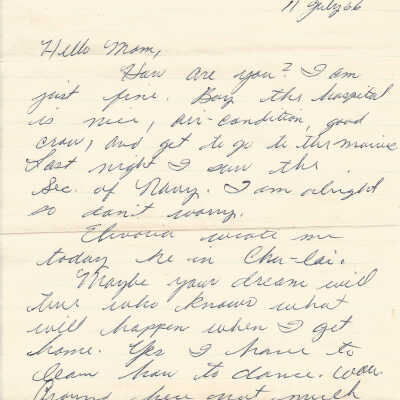 11 July 66
Hello Mom,
How are you? I am
just fine. Boy this hospital
is nice, air-condition, good
crow, and get to go to the movie
Last night I saw the
Sec. of Navy. I am alright
so don't worry.
wrote me
today he in Chu-lai.
Maybe your dream will
true who knows what
will happen when I get
home. Yes I have to
learn how to dance. Well
Around here not much